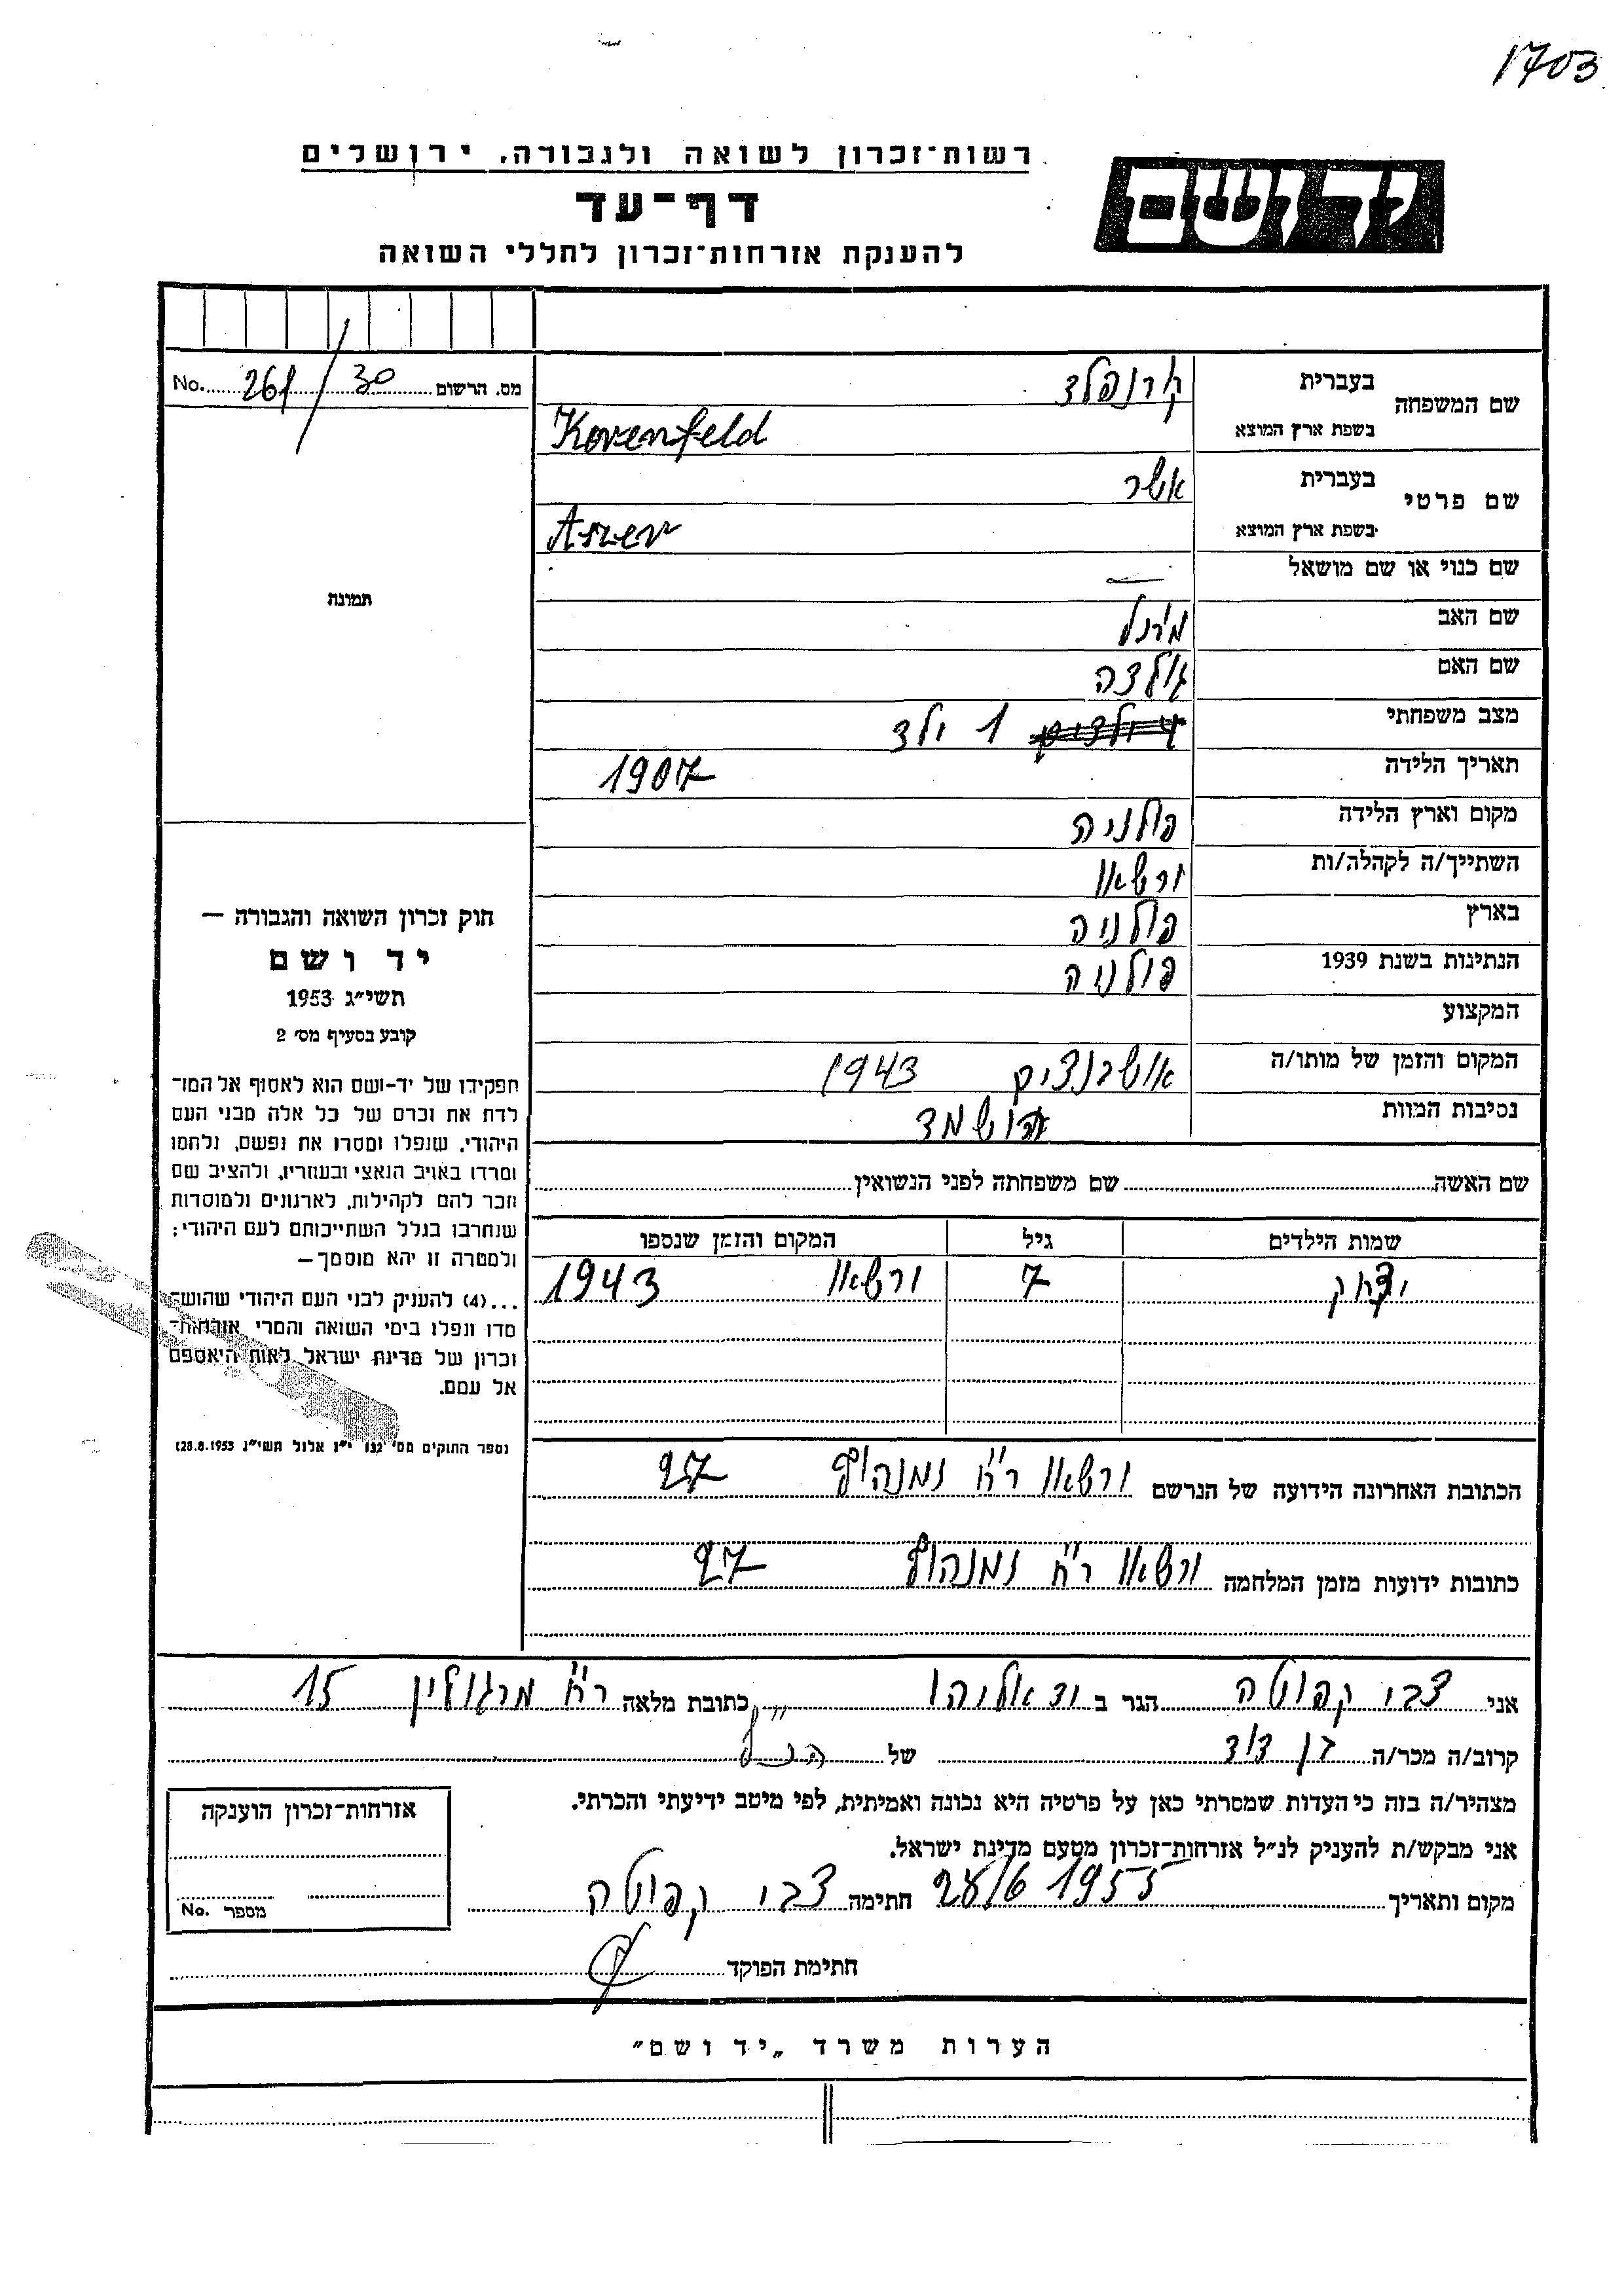 1703
יד ושם
רשות־זכרון לשואה ולגבורה, ירושלים
דף־עד
להענקת אזרחות־זכרון לחללי השואה
מס. הרשום 30/261 No.
תמונה
שם המשפחה
בעברית קרנפלד
בשפת ארץ המוצא Korenfeld
שם פרטי
בעברית אשר
בשפת ארץ המוצא
שם כנוי או שם מושאל —
שם האב
שם האם גולדה
מצב משפחתי 1 ילד
תאריך הלידה 1907
מקום וארץ הלידה פולניה
השתייך/ה לקהלה/ות ורשאו
בארץ פולניה
הנתינות בשנת 1939 פולניה
המקצוע
המקום והזמן של מותו/ה 1943
נסיבות המוות הושמד
שם האשה שם משפחתה לפני הנשואין
שמות הילדים גיל המקום והזמן שנספו
יצחק 7 ורשאו 1943
הכתובת האחרונה הידועה של הנרשם ורשאו רח' נמנהוף 27
כתובות ידועות מזמן המלחמה ורשאו רח' נמנהוף 27
חוק זכרון השואה והגבורה —
יד ושם
תשי״ג 1953
קובע בסעיף מס׳ 2
תפקידו של יד־ושם הוא לאסוף אל המו־
לדת את זכרם של כל אלה מבני העם
היהודי, שנפלו ומסרו את נפשם, נלחמו
ומרדו באויב הנאצי ובעוזריו, ולהציב שם
וזכר להם לקהילות, לארגונים ולמוסדות
שנחרבו בגלל השתייכותם לעם היהודי;
ולמטרה זו יהא מוסמך—
...(4) להענק לבני העם היהודי שהוש־
מדו ונפלו בימי השואה והמרי אזרחות־
זכרון של מדינת ישראל לאות היאספם
אל עמם.
(ספר החוקים מס׳ 132 י״ז אלול תשי״ג 28.8.1953)
אני צבי קפוטה הגר ב יד אליהו כתובת מלאה רח' מרגולין 15
קרוב/ה מכר/ה בן דוד של הנ״ל
מצהיר/ה בזה כי העדות שמסרתי כאן על פרטיה היא נכונה ואמיתית, לפי מיטב ידיעתי והכרתי.
אני מבקש/ת להעניק לנ״ל אזרחות־זכרון מטעם מדינת ישראל.
מקום ותאריך 28/6 1955 חתימה צבי קפוטה
חתימת הפוקד
אזרחות־זכרון הוענקה
מספר No.
הערות משרד „יד ושם״